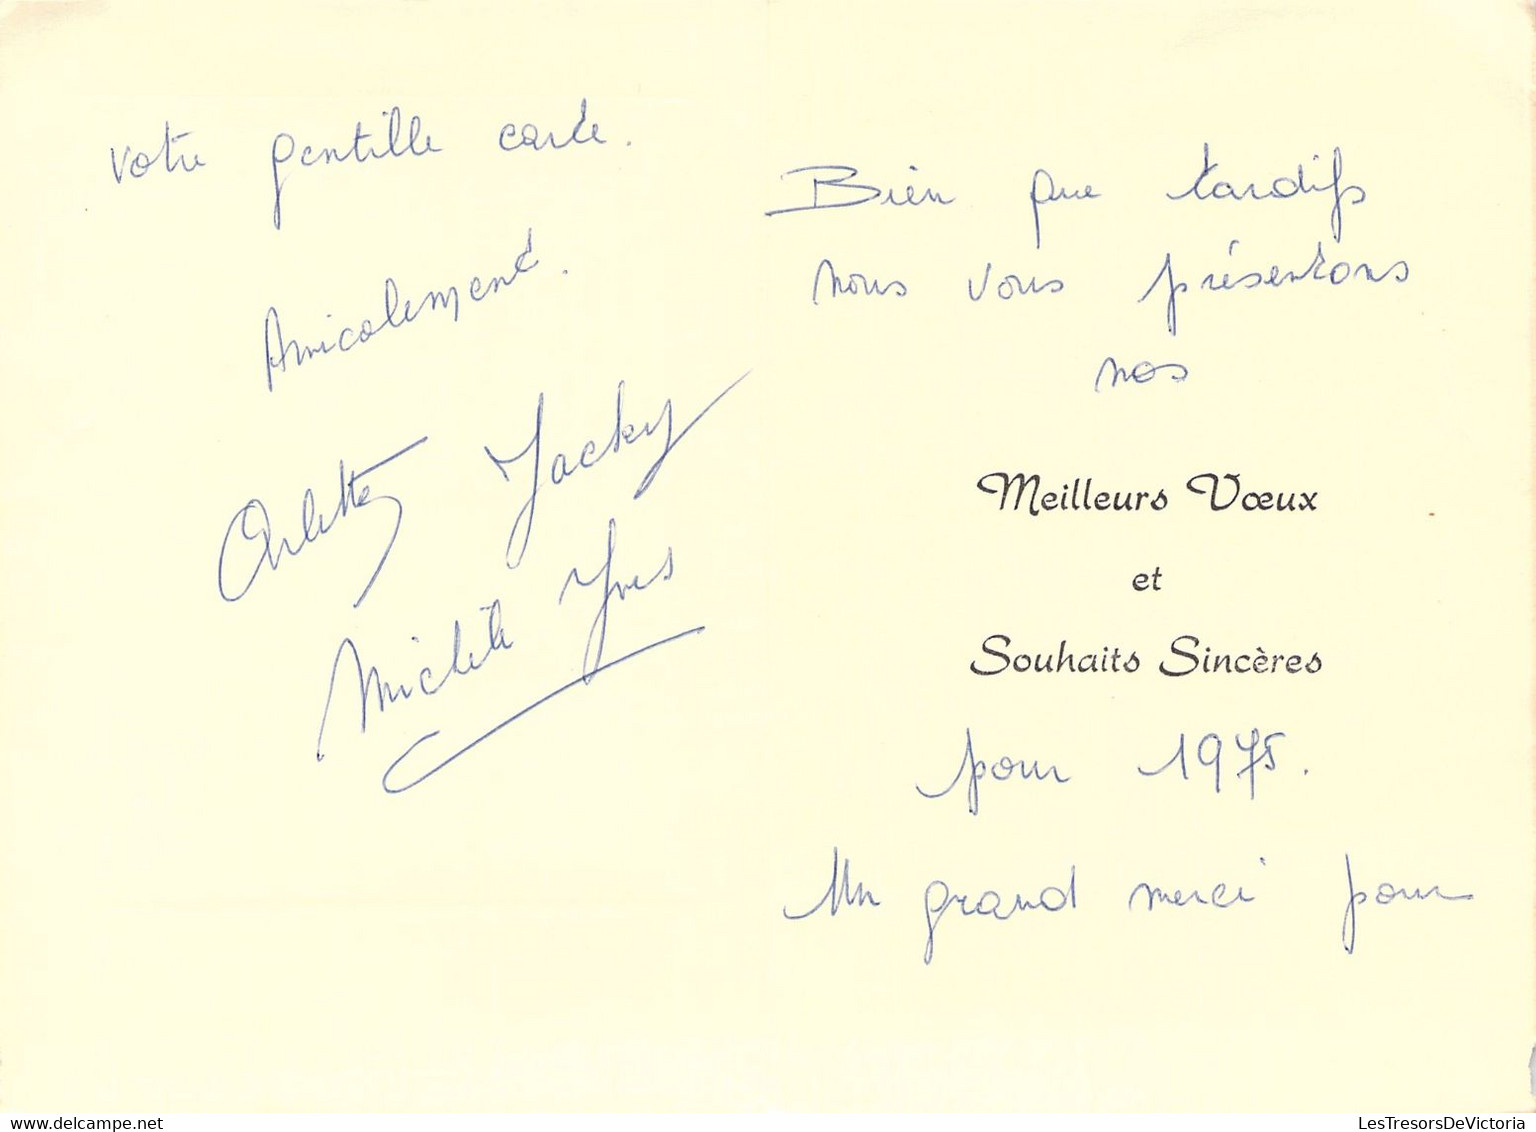 Bien que tardifs
nous vous présentons
nos
Meilleurs Vœux
et
Souhaits Sincères
pour 1975.
Un grand merci pour
votre gentille carte.
Amicalement.
Arlette Jacky
Michèle Yves
delcampe.net
LesTresorsDeVictoria